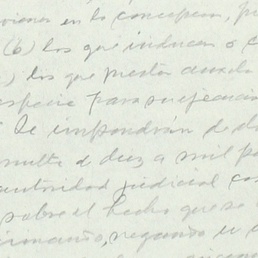 en la concepcion, p
(b) los que inducen o c
) los que prestan auxilio
especie para su ejecucion
Se impondrán de d
multa de diez a mil p
autoridad judicial co
sobre el hecho que se
negando